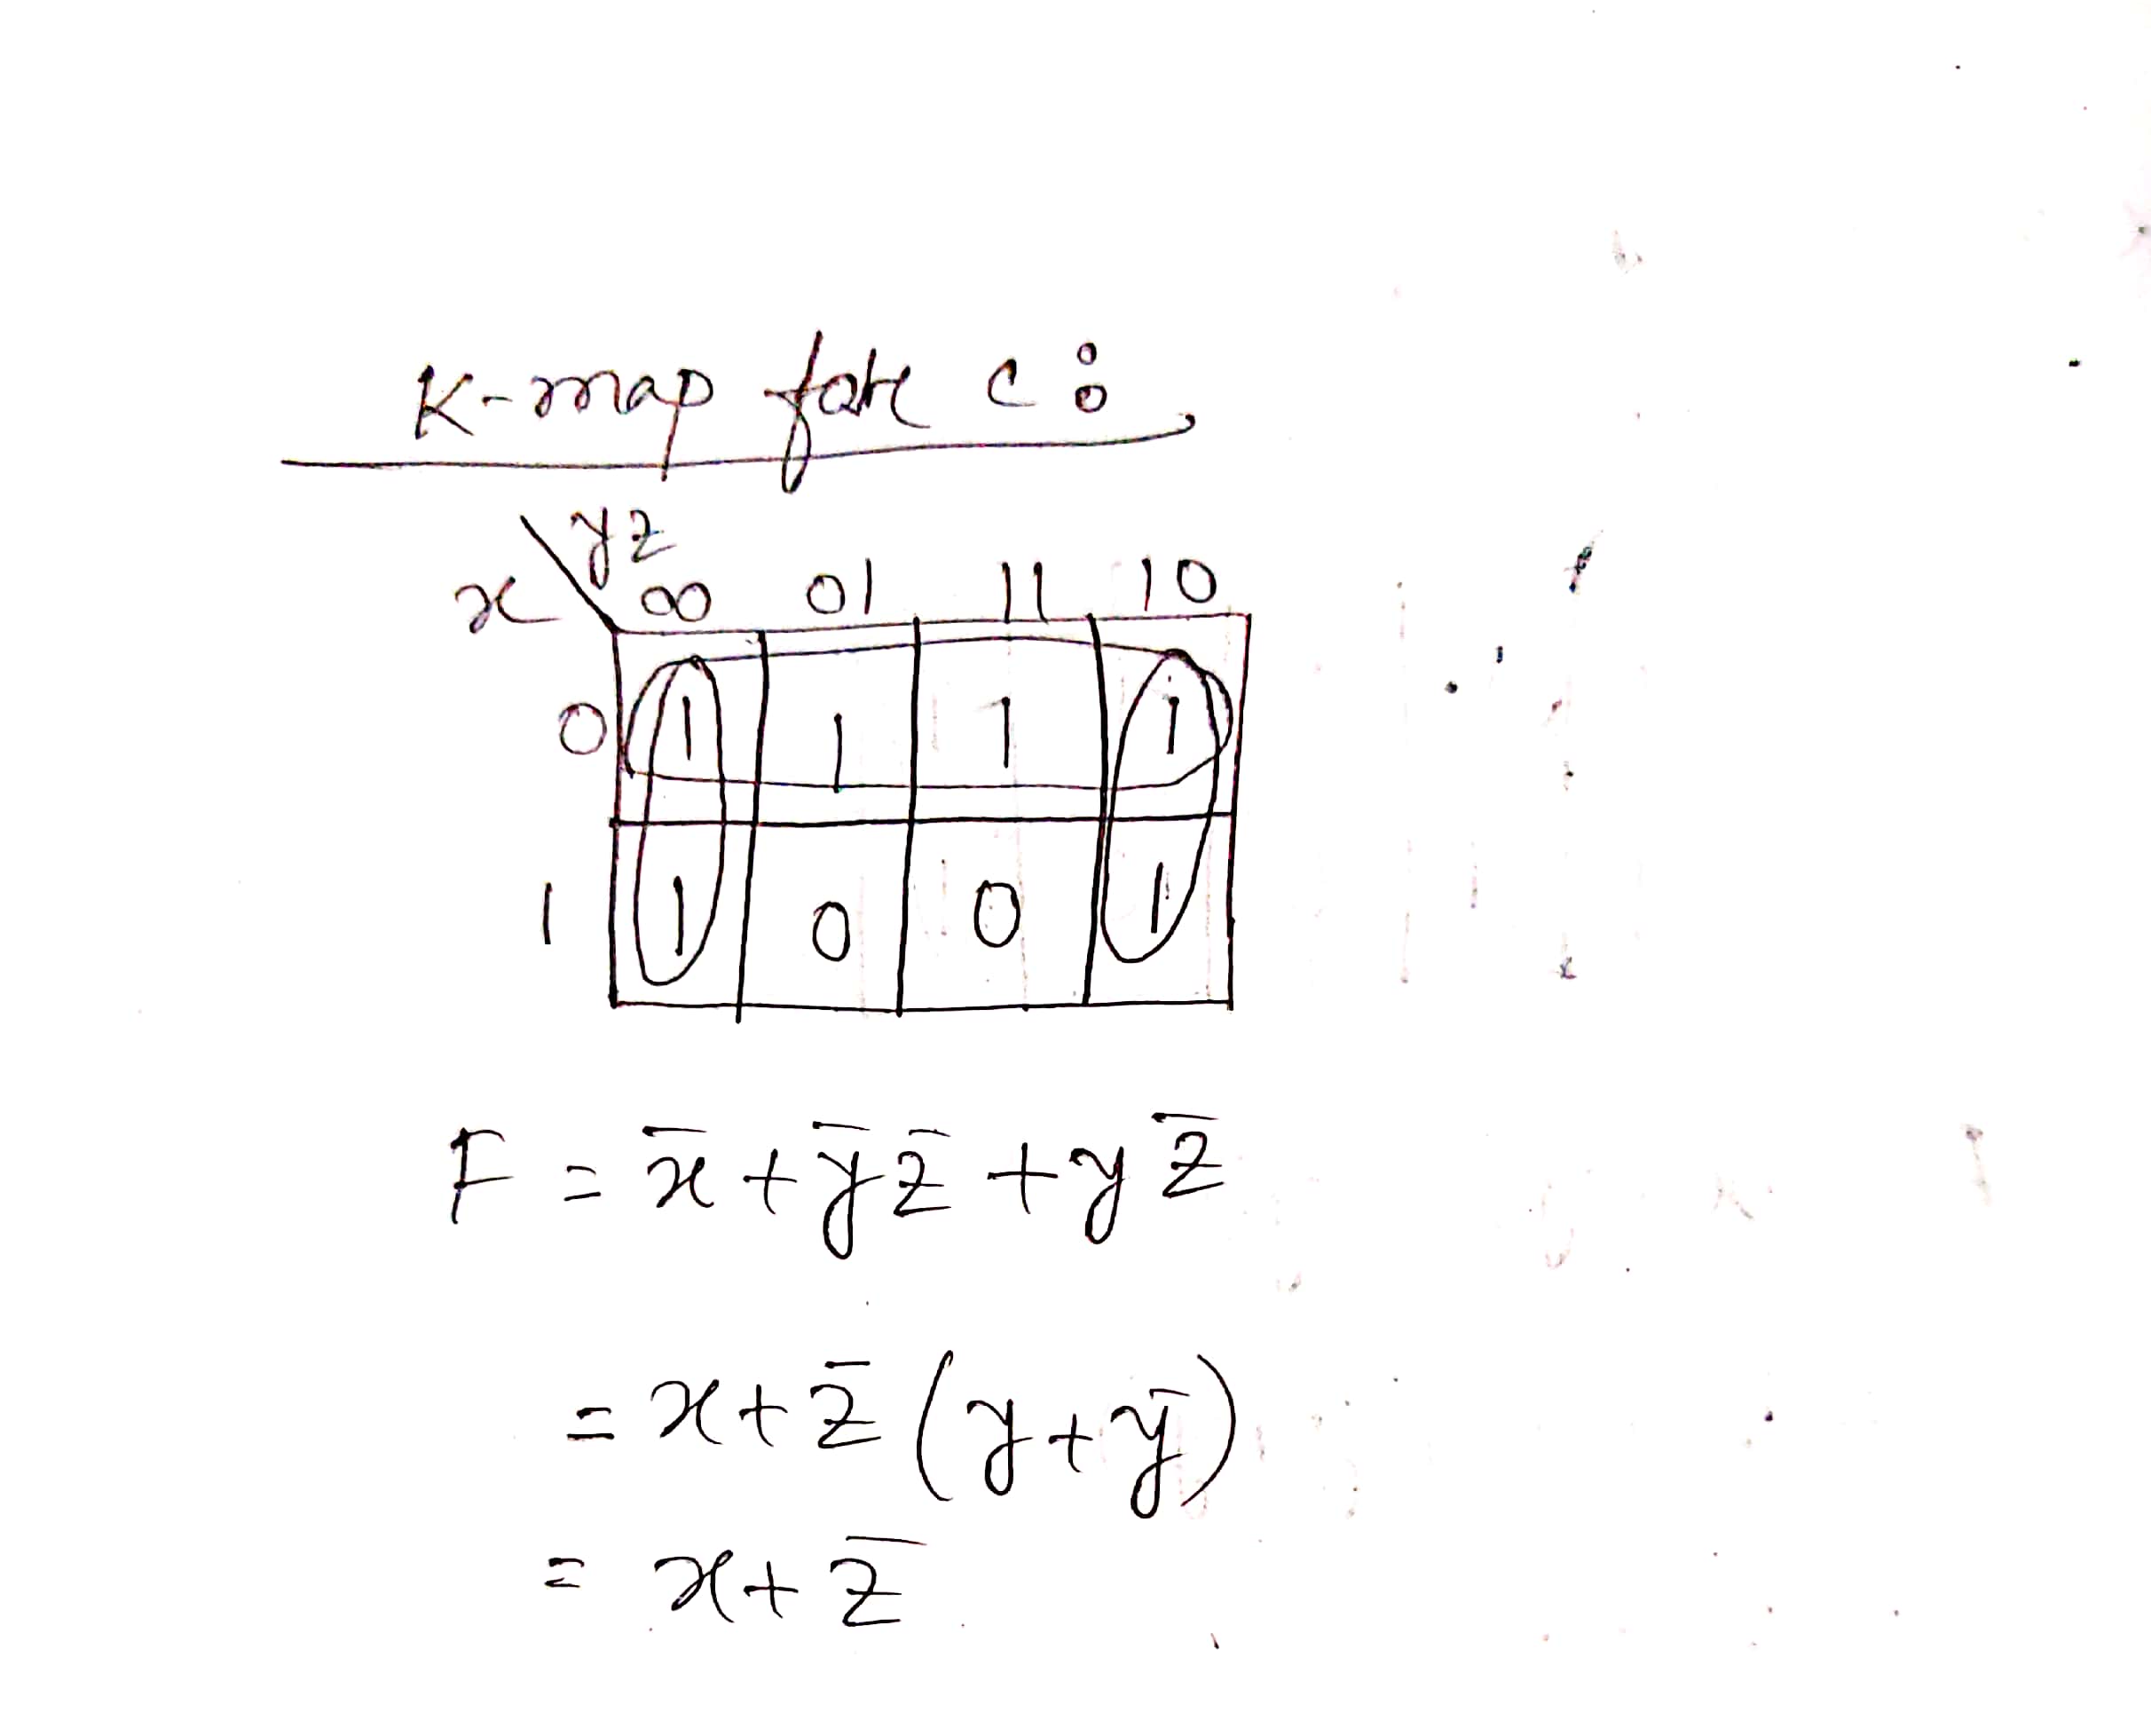 K-map fore C :
yz
x 00 01 11 10
0 1 1 1 1
1 1 0 0 1
F = x̄ + ȳ z̄ + y z̄
= x + z̄ (y + ȳ)
= x + z̄